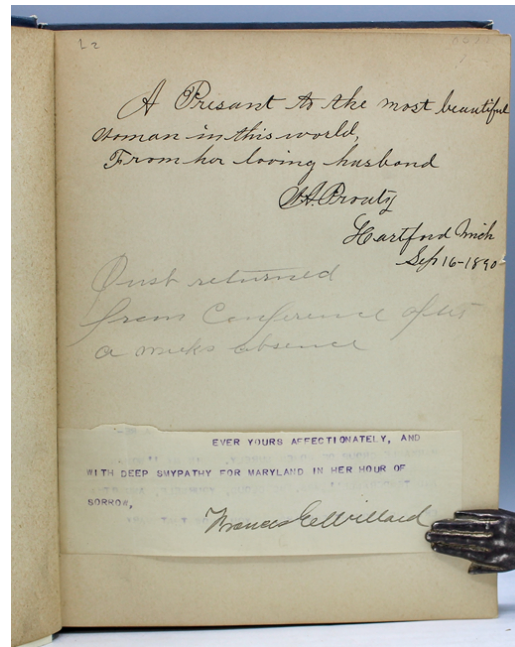 L2
A Presant to the most beautiful
woman in this world,
From her loving husband
Prouty
Hartford Mich
Sep 16-1890-
Just returned
from Conference after
a weeks absence
EVER YOURS AFFECTIONATELY, AND
WITH DEEP SMYPATHY FOR MARYLAND IN HER HOUR OF
SORROW,
Frances E. Willard